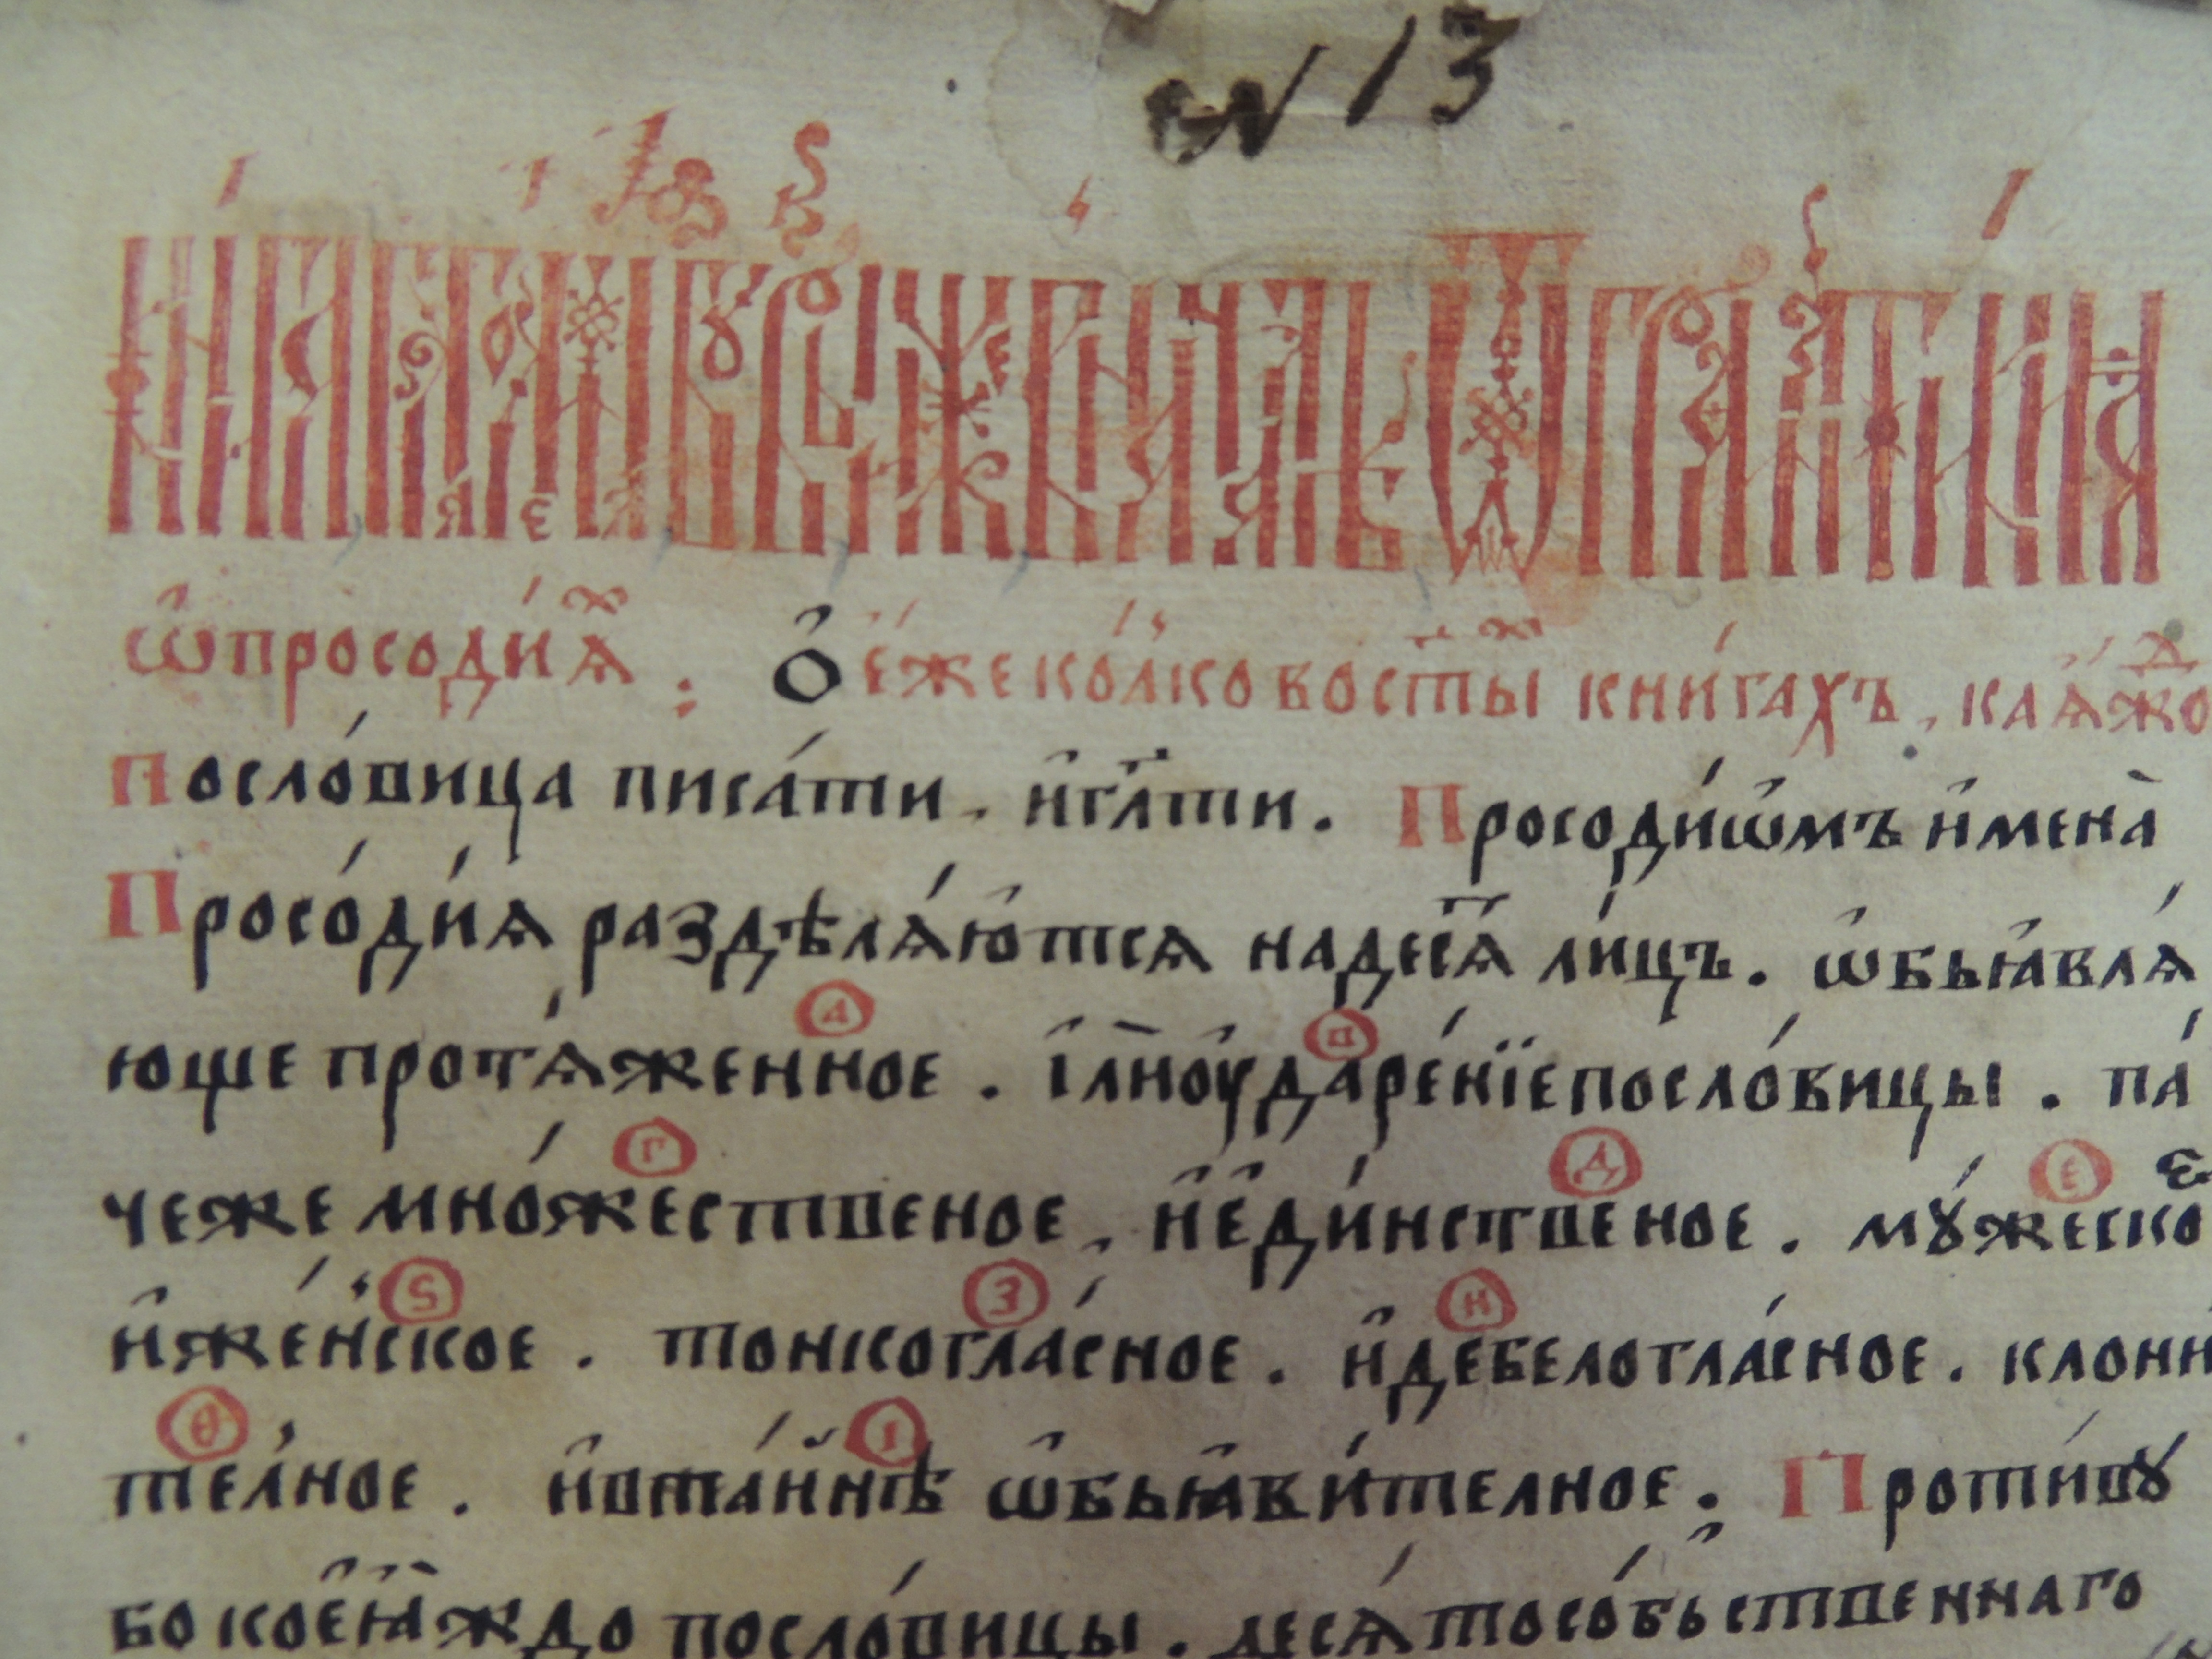 № 13
ѡ҆просоди́ѧх : О҆ е҆́же ко́лко во ст҃ых кни́гахъ, каѧ́ждо
посло́вица писа́ти, и҆гл҃ати. Просоди́ѡмъ и҆мена̀
Просо́ди́ѧ раздѣлѧ́ю҆тсѧ на десѧ́т ли́цъ. ѡ҆бъꙗ҆влѧ́
юще протѧ́женное а҃. і҆лѝ ᲂу҆даре́нїе в҃ посло́вицы. па́
чеже мно́жественое г҃, и҆е҆ди́нственое д҃. мꙋ́жеско е҃
и҆же́нское ѕ҃. тонкогла́сное з҃. и҆дебелогла́сное и҃. клони
телное ѳ҃. и҆вта́йнѣ і҃ ѡ҆бьꙗ҆ви́телное: Проти́вꙋ
бо кое҆ꙗ҆́ждо посло́вицы. десѧ́тосо́бьственнаго